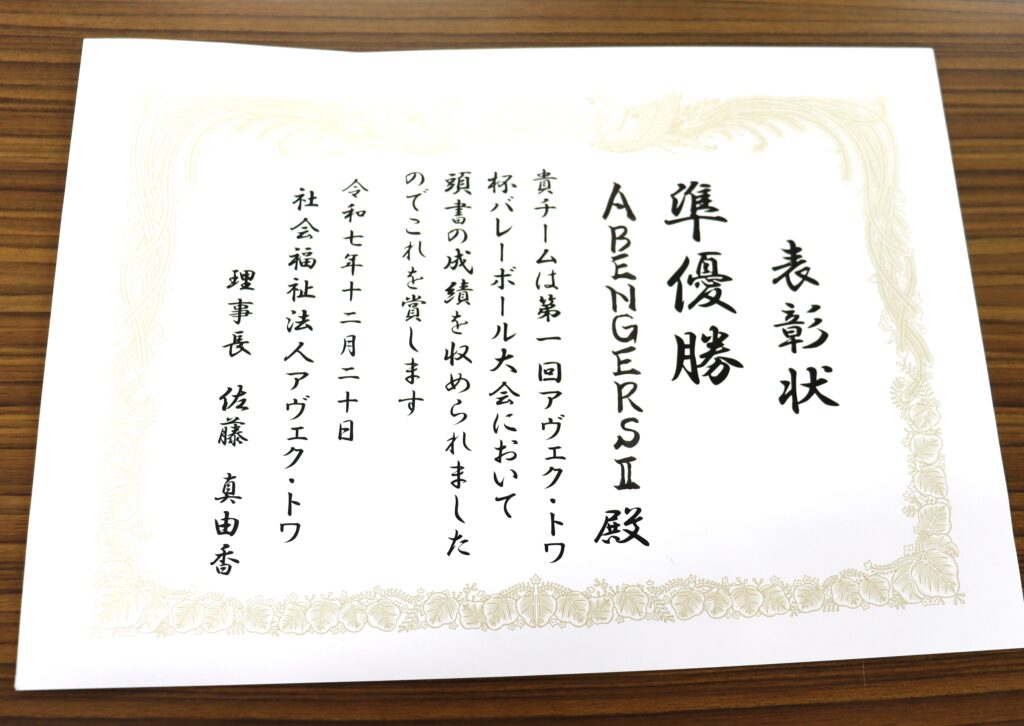 表彰状
準優勝
ABENGERSⅡ殿
貴チームは第一回アヴェク・トワ
杯バレーボール大会において
頭書の成績を収められました
のでこれを賞します
令和七年十二月二十日
社会福祉法人アヴェク・トワ
理事長 佐藤 真由香